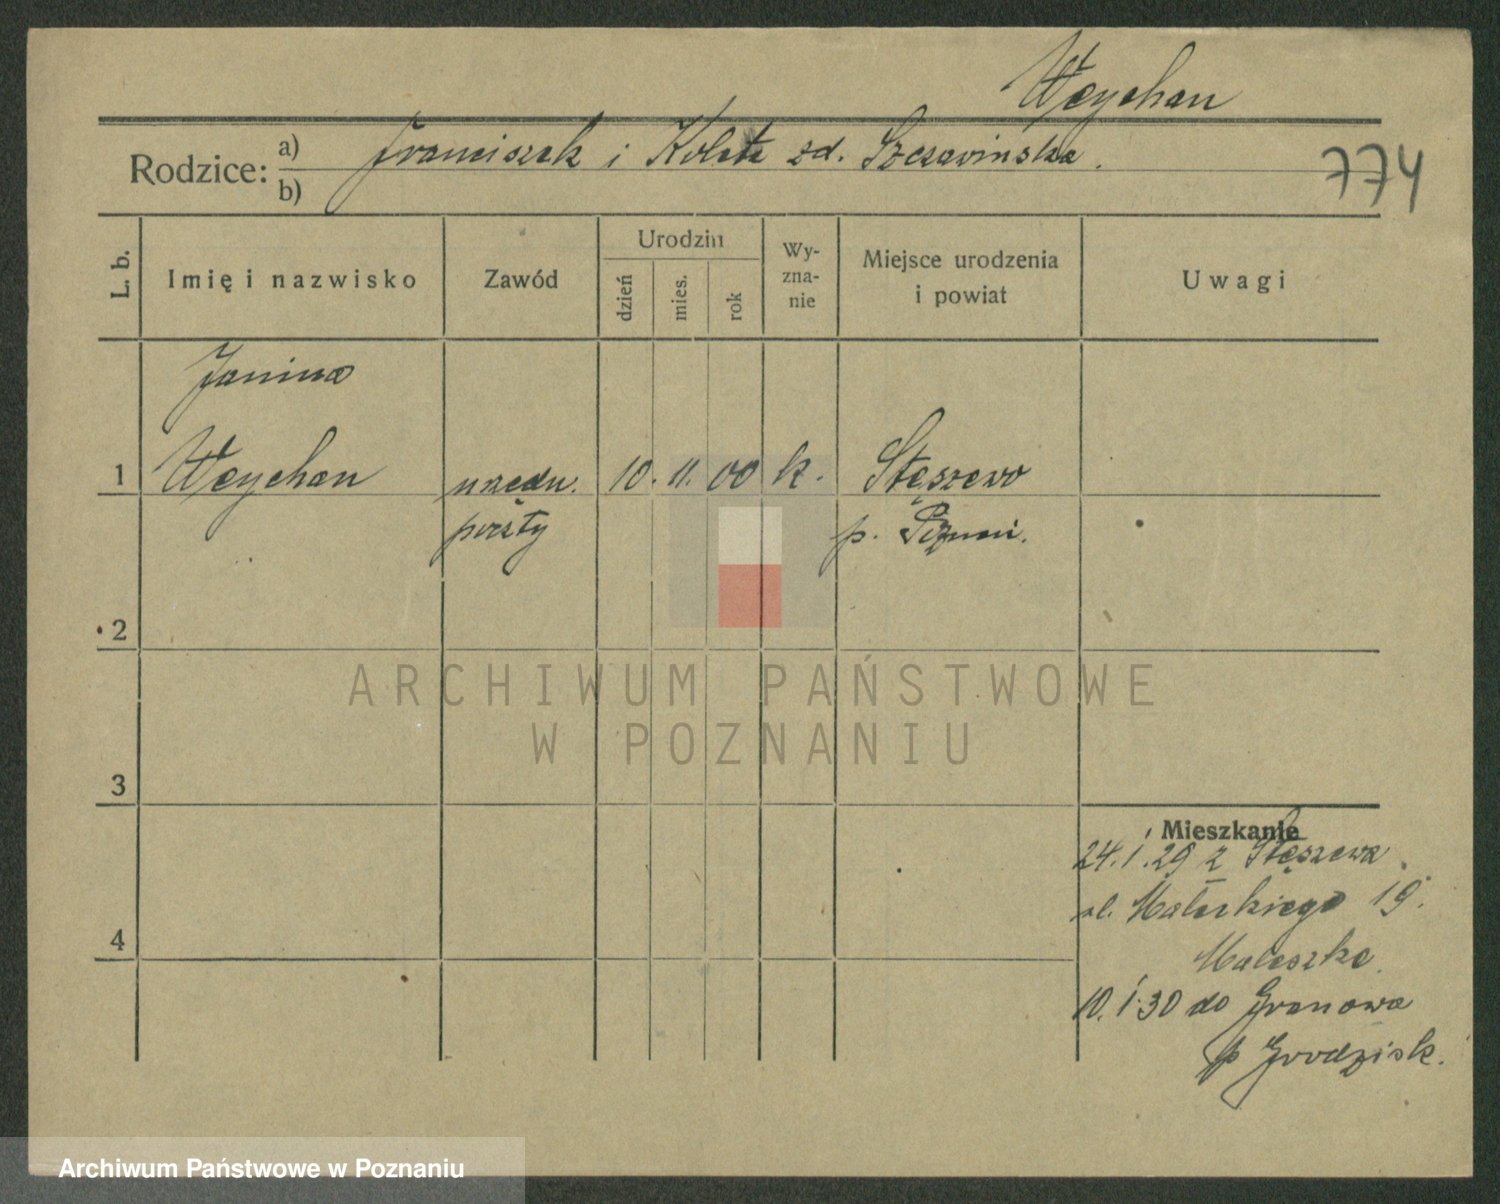 Weychan
Rodzice: a) Franciszek i Koleta zd. Szczawińska.
b)
774
L. b.
Imię i nazwisko
Zawód
Urodzin
dzień
mies.
rok
Wy-
zna-
nie
Miejsce urodzenia
i powiat
Uwagi
Janina
1 Weychan urzędn. 10. 11. 00 k. Stęszewo
poczty p. Poznań.
2
ARCHIWUM PAŃSTWOWE
W POZNANIU
3
Mieszkanie
24.1.29 z Stęszewa
ul. Małeckiego 19.
4
10.1.30 do Granowa
p Grodzisk.
Archiwum Państwowe w Poznaniu